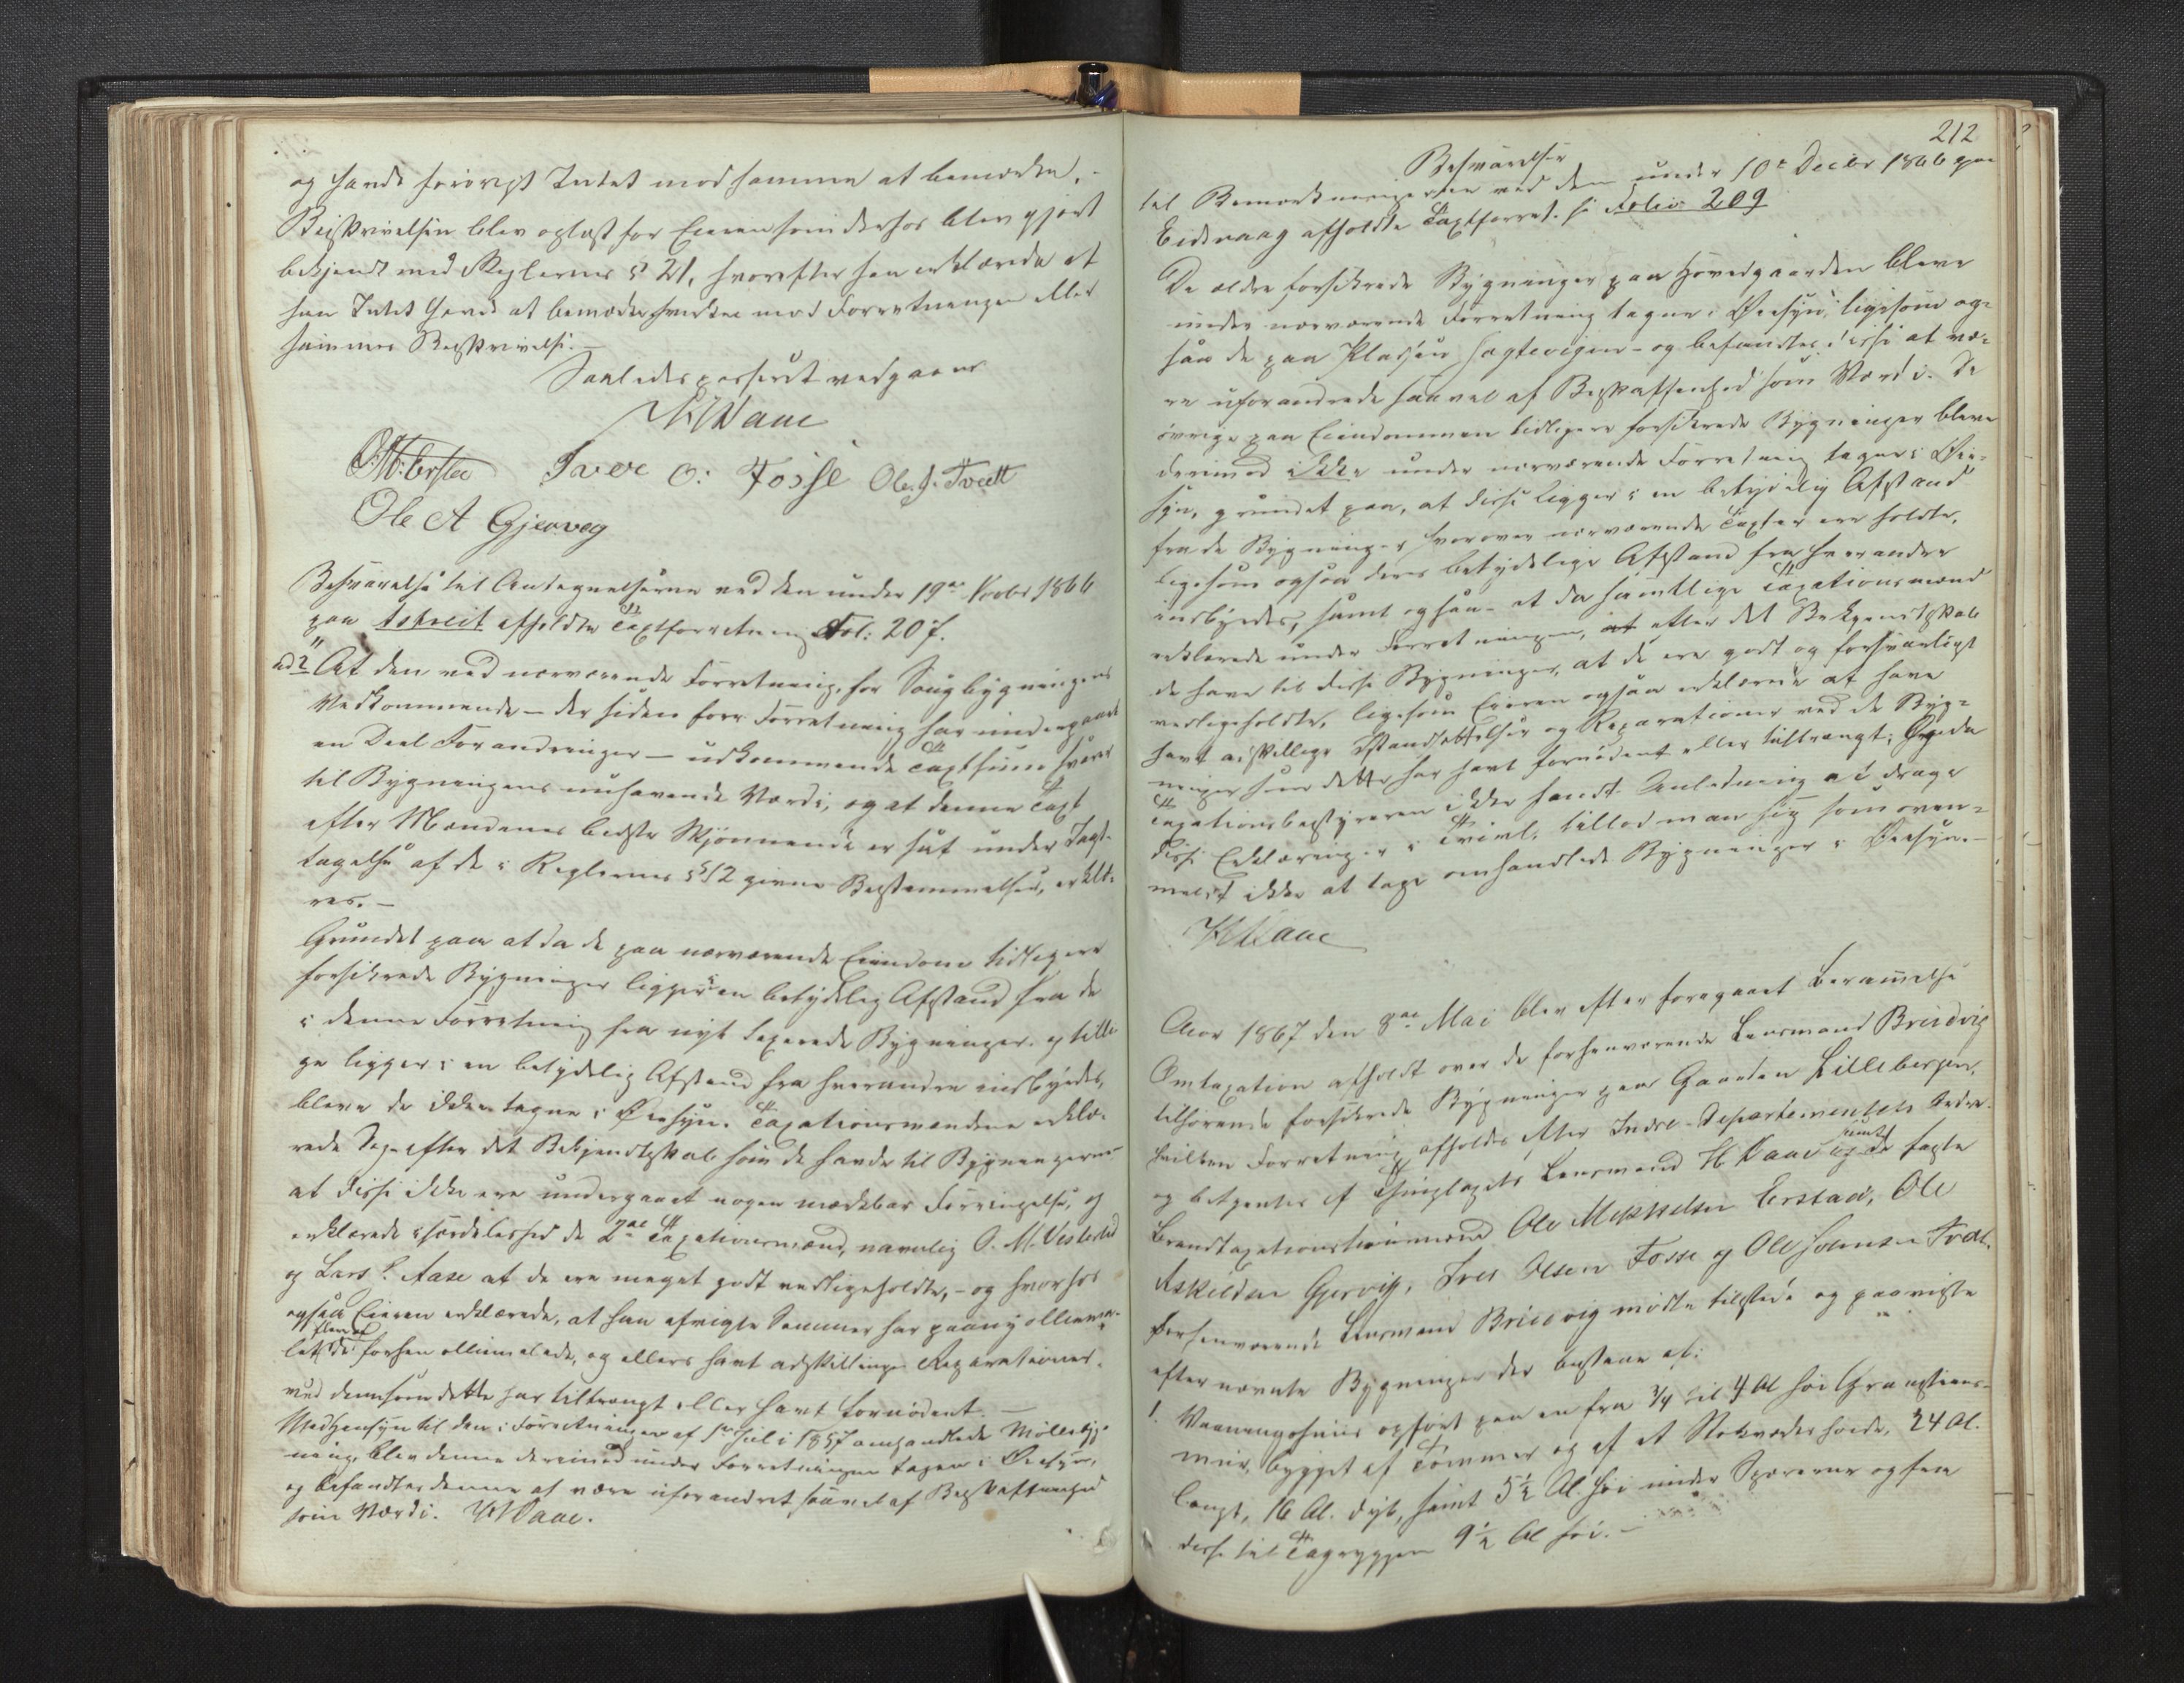 og havde forøvrigt Intet mod samme at bemærke. -
Beskrivelsen blev oplæst for Eieren som derhos blev gjort
bekjendt med Reglernes § 21, hvorefter han erklærede at
han Intet havde at bemærke hverken mod Forretningen eller
sammes Beskrivelse. -
Saaledes passeret vedgaaes
HWaae
O. M. Erstad Iver O: Fosse Ole. J. Tveit
Ole A Gjerveg
Besvarelse til Antegnelserne ved den under 19de Novbr 1866
paa Askveit afholdte Taxtforretning Fol: 207.
ad 2 At den ved nærværende Forretning, for Saugbygningens
Vedkommende - der siden forr Forretning har undergaaet
en Deel Forandringer - udkommende Taxtsum svarer
til Bygningens nuhavende Værdi, og at denne Taxt
efter Mændenes bedste Skjønnende er sat under Iagt-
tagelse af de i Reglernes § 12 givne Bestemmelser, erklæ-
res. -
Grundet paa at da de paa nærværende Eiendom tidligere
forsikrede Bygninger ligger i en betydelig Afstand fra de
i denne Forretning fra nyt taxerede Bygninger og tilli-
ge ligger i en betydelig Afstand fra hverandre indbyrdes,
bleve de ikke tagne i Øiesyn. Taxationsmændene erklæ-
rede dog efter det Bekjendtskab som de havde til Bygningerne
at disse ikke ere undergaaet nogen mærkbar Forringelse, og
erklærede i særdeleshed de 2de Taxationsmænd, navnlig O. M. Vestrheid
og Lars L. Aase at de ere meget godt vedligeholdte, - og hvorhos
ogsaa Eieren erklærede, at han afvigte Sommer har paany olliema-
let fleere af de forhen olliemalede, og ellers havt adskillige Reparationer
ved dem som dette har tiltrængt eller havt fornødent. -
Med Hensyn til den i Forretningen af 1ste Juli 1857 omhandlede Møllebyg-
ning, blev denne derimod under Forretningen tagen i Øiesyn,
og befandtes denne at være uforandret saavel af Beskaffenhed
som Værdi. HWaae.
212
Besvarelser
til Bemærkningerne ved den under 10de Decbr 1866 paa
Eidsvaag afholdte Taxtforret. se Folio 209
De ældre forsikrede Bygninger paa Hovedgaarden bleve
under nærværende Forretning tagne i Øiesyn, ligesom og-
saa de paa Pladsen Jægtevigen - og befandtes disse at væ-
re uforandrede saavel af Beskaffenhed som Værdi. De
øvrige paa Eiendommen tidligere forsikrede Bygninger bleve
derimod ikke under nærværende Forretning tagne i Øie-
syn, grundet paa, at disse ligger i en betydelig Afstand
fra de Bygninger hvorover nærværende Taxter ere holdte,
ligesom ogsaa deres betydelige Afstand fra hverandre
indbyrdes, samt ogsaa - at da samtlige Taxationsmænd
erklærede under Forretningen, at efter det Bekjendtskab
de have til disse Bygninger, at de ere godt og forsvarligt
vedligeholdte, ligesom Eieren ogsaa erklærede at have
havt adskillige Istandsættelser og Reparationer ved de Byg-
ninger som dette har havt fornødent eller tiltrængt; og da
Taxationsbestyreren ikke fandt Anledning at drage
disse Erklæringer i Tvivl, tillod man sig som oven-
meldt ikke at tage omhandlede Bygninger i Øiesyn. -
HWaae
Aar 1867 den 8de Mai blev efter foregaaet Berammelse
Omtaxation afholdt over de forhenværende Lensmand Breidvig
tilhørende forsikrede Bygninger paa Gaarden Lillebergen,
hvilken Forretning afholdes efter Indre-Departementets Ordre
og betjentes af Thinglagets Lensmand H Waae samt de faste
Brandtaxationsmænd Ole Mikkelsen Erstad, Ole
Askildsen Gjervig, Iver Olsen Fosse og Ole Johnsen Tvet.
Forhenværende Lensmand Breidvig mødte tilstede og paaviste
efternævnte Bygninger der bestaae af:
1. Vaaningshuus opført paa en fra 3/4 til 4 Al høi Graasteens-
muur, bygget af Tømmer og af et Stokværks høide, 24 Al.
langt, 16 Al. dyb, samt 5½ Al. høi under Sparrerne og fra
disse til Tagryggen 9½ Al høi. -